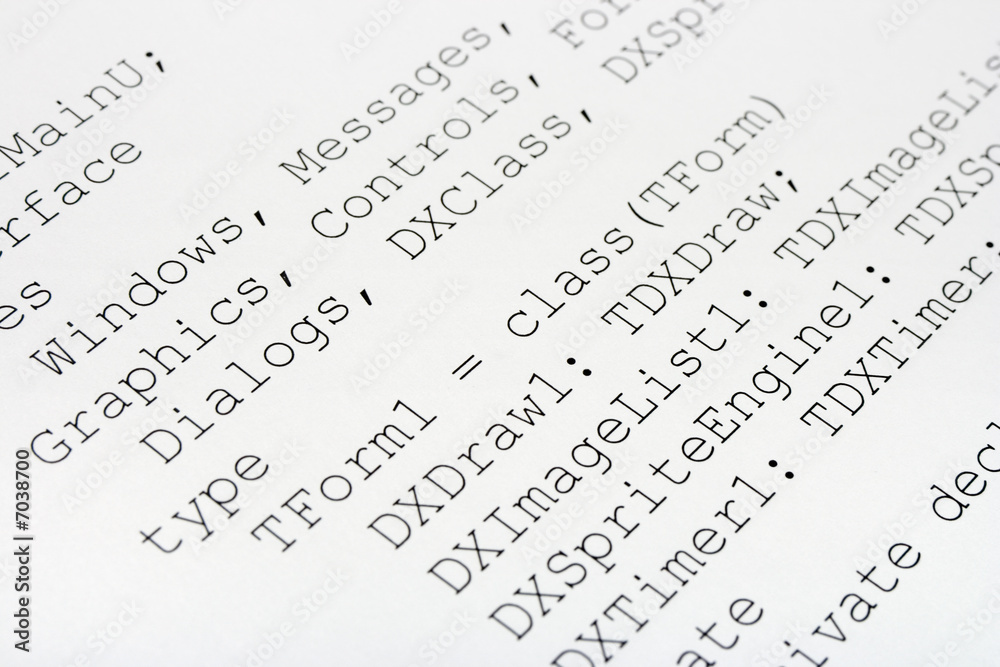 MainU;
rface
es
Windows, Messages,
Graphics, Controls,
Dialogs, DXClass, DXSpri
type
TForm1 = class(TForm)
DXDraw1: TDXDraw;
DXImageList1: TDXImageLis
DXSpriteEngine1: TDXSp
DXTimer1: TDXTimer;
ate
ivate decl
Adobe Stock | #7038700